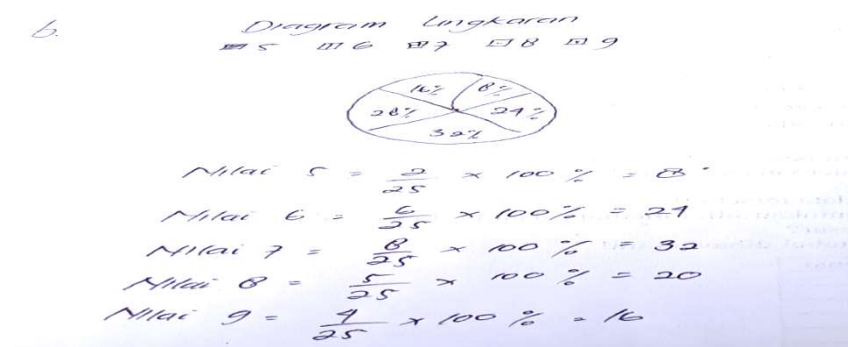 b. Diagram Lingkaran
5 6 7 8 9
16% 8%
28% 24%
32%
Nilai 5 = 2/25 x 100 % = 8
Nilai 6 = 6/25 x 100% = 24
Nilai 7 = 8/25 x 100 % = 32
Nilai 8 = 5/25 x 100 % = 20
Nilai 9 = 4/25 x 100 % = 16